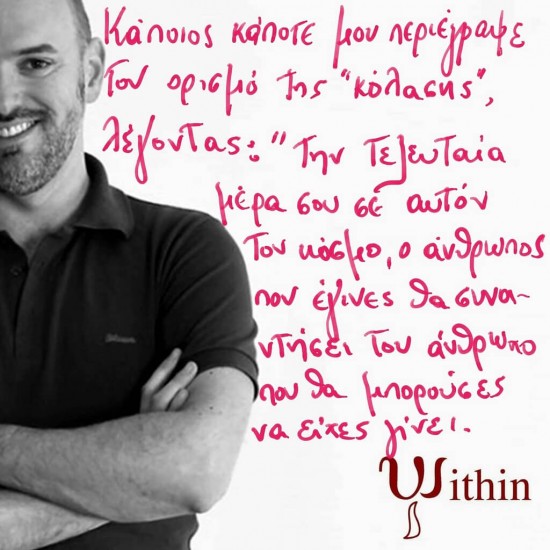 Κάποιος κάποτε μου περιέγραψε
τον ορισμό της "κόλασης",
λέγοντας: "Την τελευταία
μέρα σου σε αυτόν
τον κόσμο, ο άνθρωπος
που έγινες θα συνα-
ντήσει τον άνθρωπο
που θα μπορούσες
να είχες γίνει.
Within